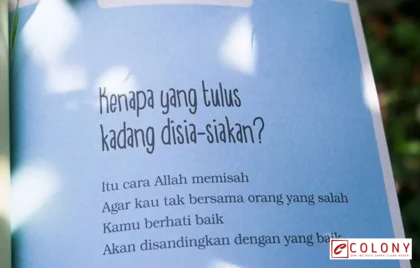 Kenapa yang tulus
kadang disia-siakan?
Itu cara Allah memisah
Agar kau tak bersama orang yang salah
Kamu berhati baik
Akan disandingkan dengan yang baik
COLONY